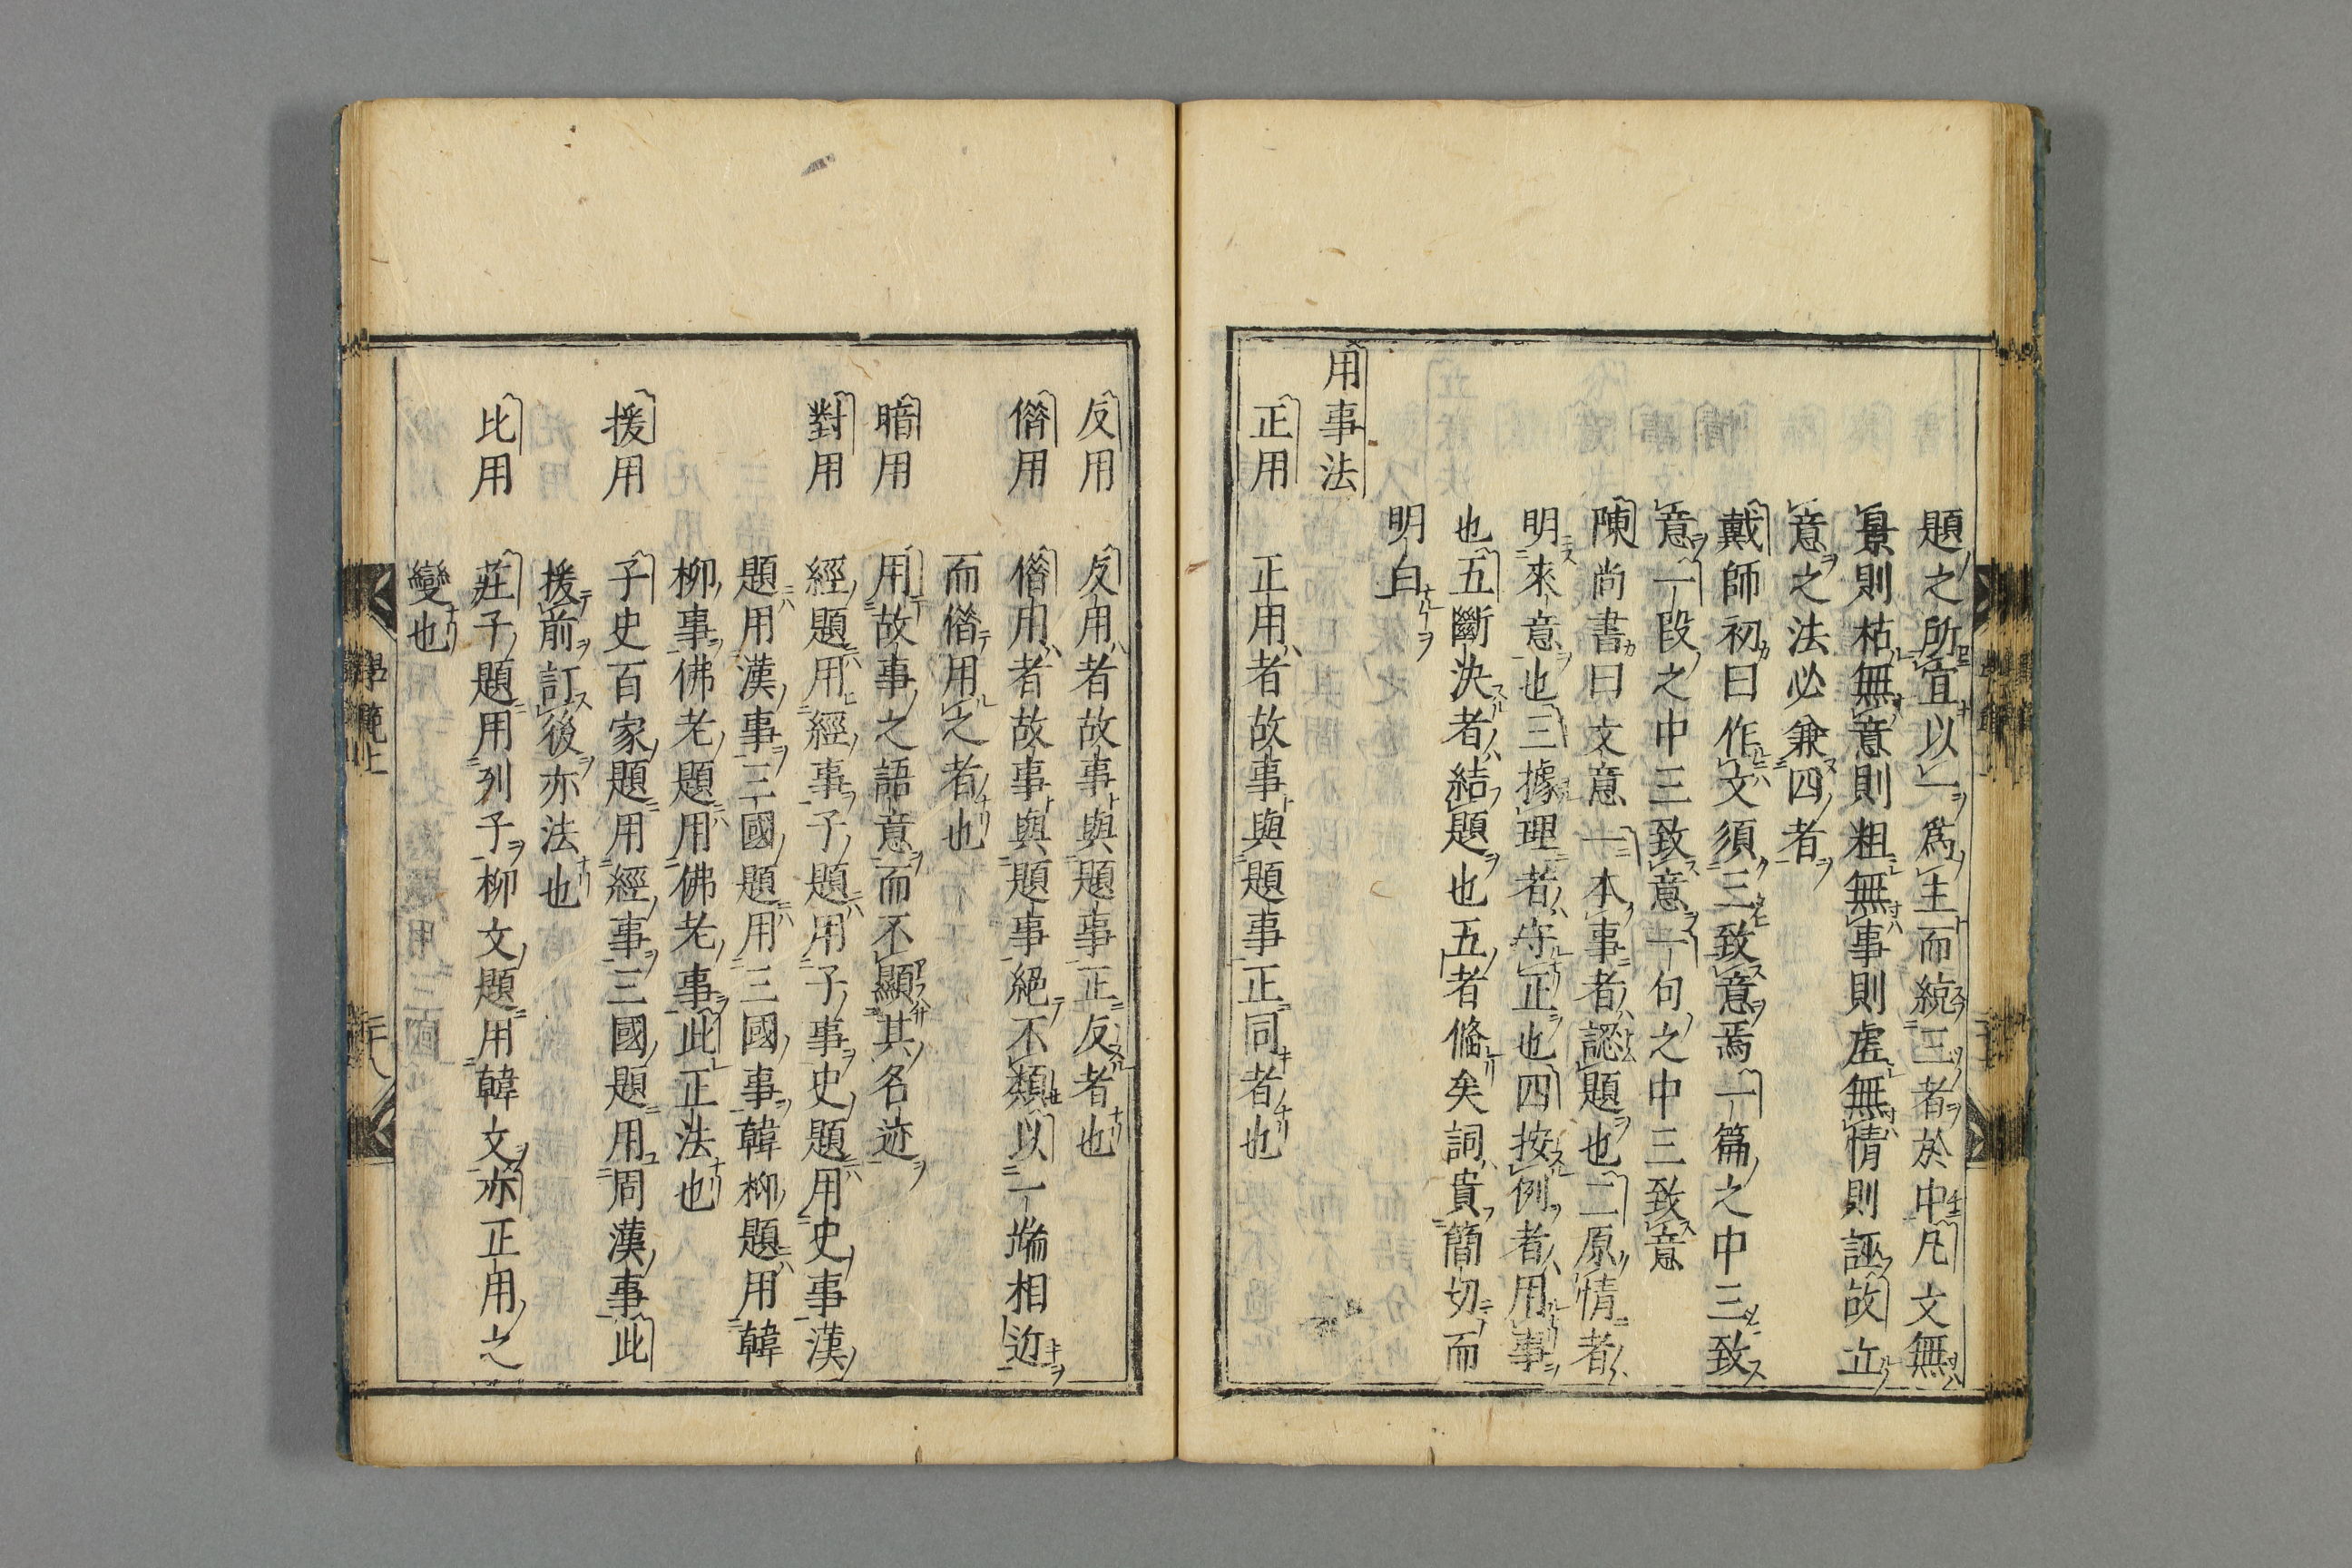 題之所宜以一爲主而統三者於中凡文無
景則枯無意則粗無事則虛無情則誣故立
意之法必兼四者
戴師初曰作文須三致意焉一篇之中三致
意一段之中三致意一句之中三致意
陳尚書曰文意一本事者認題也二原情者
明來意也三據理者守正也四按例者用事
也五斷決者結題也五者俻矣詞貴簡切而
明白
用事法
正用　正用者故事與題事正同者也
反用　反用者故事與題事正反者也
借用　借用者故事與題事絕不類以一端相近
而借用之者也
暗用　用故事之語意而不顯其名迹
對用　經題用經事子題用子事史題用史事漢
題用漢事三國題用三國事韓柳題用韓
柳事佛老題用佛老事此正法也
援用　子史百家題用經事三國題用周漢事此
援前訂後亦法也
比用　莊子題用列子柳文題用韓文亦正用之
變也
學範上